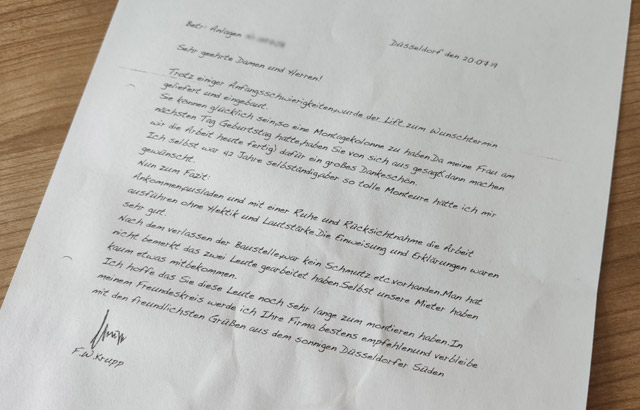 Betr: Anlagen
Düsseldorf den 20.07.19
Sehr geehrte Damen und Herren!
Trotz einiger Anfangsschwierigkeiten,wurde der Lift zum Wunschtermin
geliefert und eingebaut.
Sie können glücklich sein,so eine Montagekolonne zu haben.Da meine Frau am
nächsten Tag Geburtstag hatte,haben Sie von sich aus gesagt,dann machen
wir die Arbeit heute fertig) dafür ein großes Dankeschön.
Ich selbst war 42 Jahre selbständig,aber so tolle Monteure hätte ich mir
gewünscht.
Nun zum Fazit:
Ankommen,ausladen und mit einer Ruhe und Rücksichtnahme die Arbeit
ausführen ohne Hektik und Lautstärke.Die Einweisung und Erklärungen waren
sehr gut.
Nach dem verlassen der Baustelle,war kein Schmutz etc.vorhanden.Man hat
nicht bemerkt das zwei Leute gearbeitet haben.Selbst unsere Mieter haben
kaum etwas mitbekommen.
Ich hoffe das Sie diese Leute noch sehr lange zum montieren haben.In
meinem Freundeskreis werde ich Ihre Firma bestens empfehlen,und verbleibe
mit den freundlichsten Grüßen aus dem sonnigen Düsseldorfer Süden
F.W.Krupp